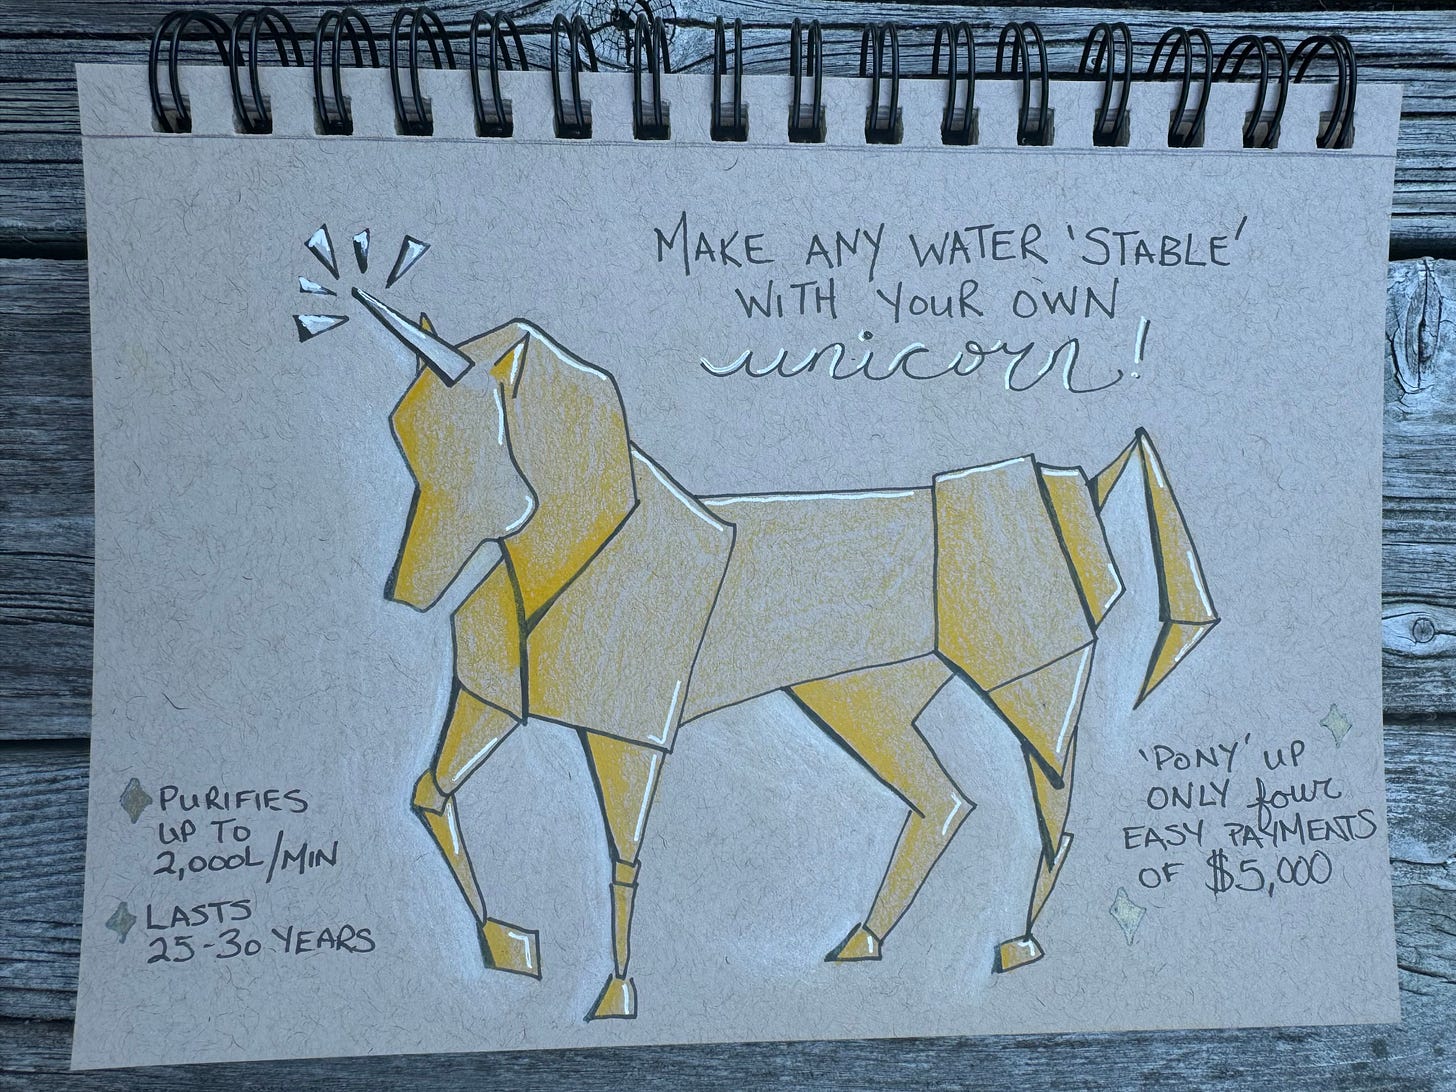 MAKE ANY WATER 'STABLE'
WITH YOUR OWN
unicorn!
PURIFIES
UP TO
2,000L/MIN
LASTS
25-30 YEARS
'PONY' UP
ONLY four
EASY PAYMENTS
OF $5,000